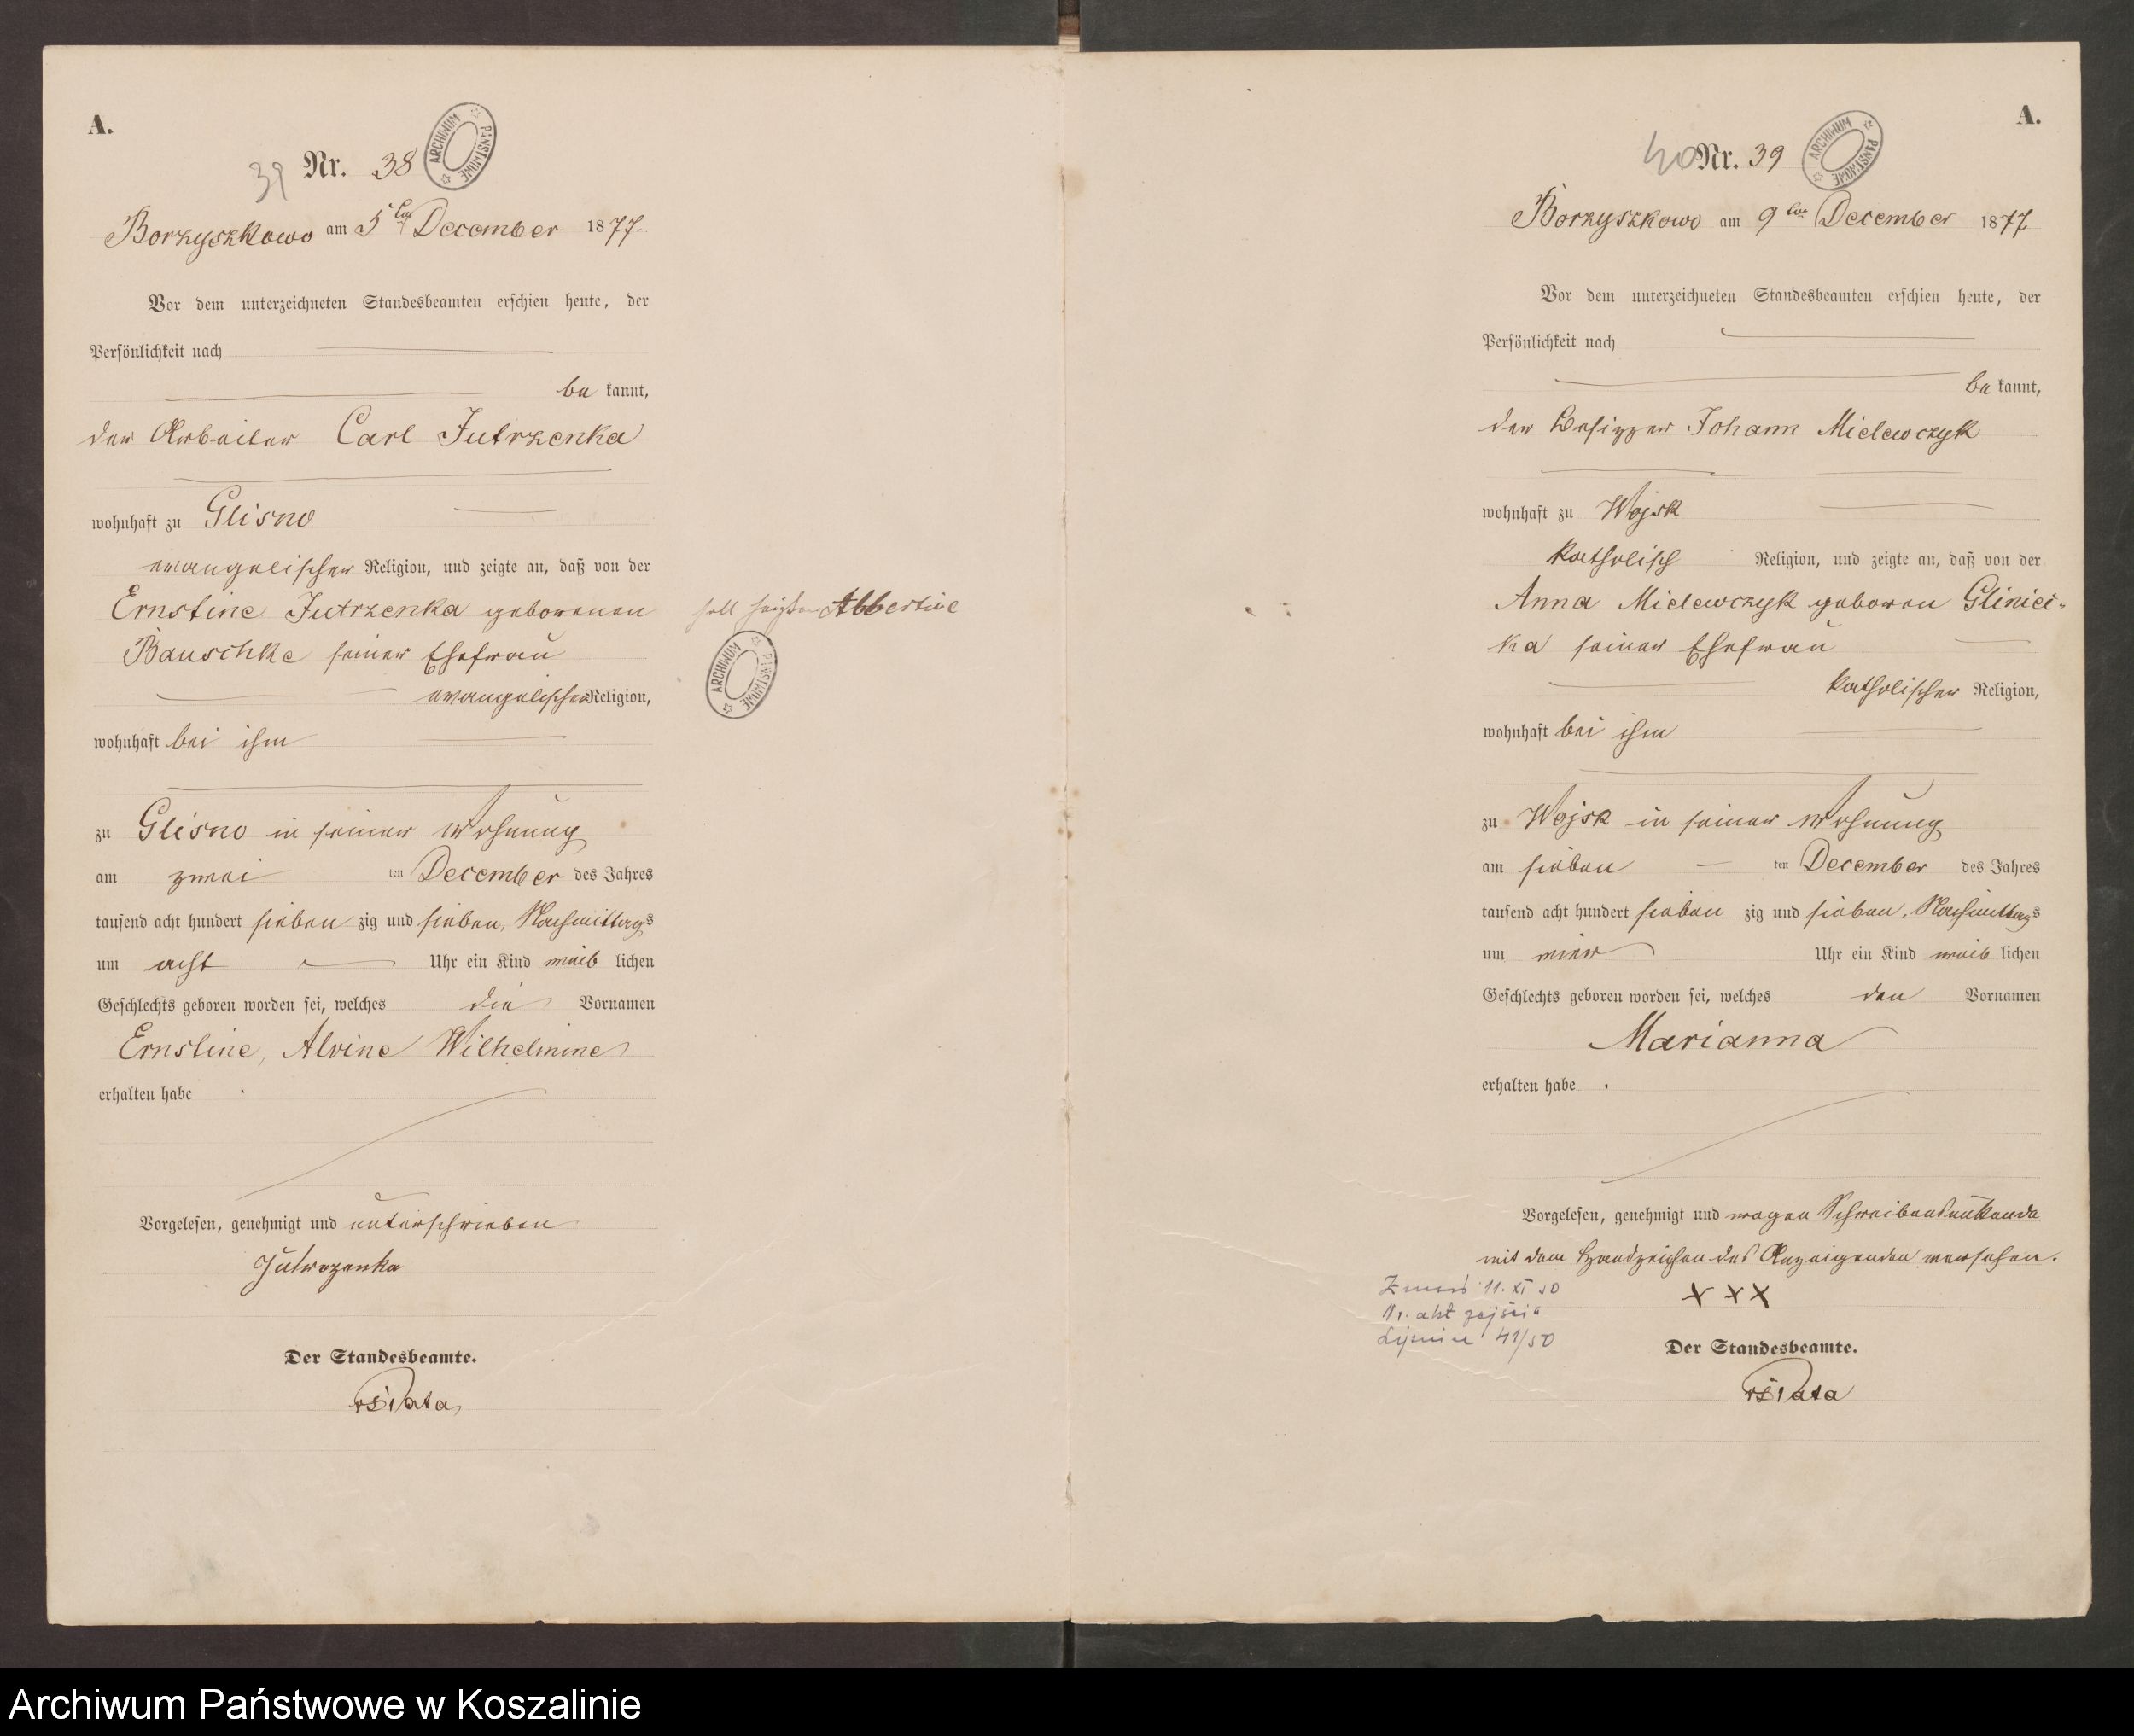 A.
39 Nr. 38
ARCHIWUM PAŃSTWOWE
Borzyszkowo am 5ten December 1877.
Vor dem unterzeichneten Standesbeamten erschien heute, der
Persönlichkeit nach
be kannt,
der Arbeiter Carl Jutrzenka
wohnhaft zu Glisno
evangelischer Religion, und zeigte an, daß von der
Ernstine Jutrzenka geborenen
Bauschke seiner Ehefrau
evangelischer Religion,
wohnhaft bei ihm
zu Glisno in seiner Wohnung
am zwei ten December des Jahres
tausend acht hundert sieben zig und sieben, Nachmittags
um acht Uhr ein Kind weib lichen
Geschlechts geboren worden sei, welches die Vornamen
Ernstine, Alvine Wilhelmine
erhalten habe
Vorgelesen, genehmigt und unterschrieben
Jutrzenka
Der Standesbeamte.
soll heißen Albertine
ARCHIWUM PAŃSTWOWE
A.
40 Nr. 39
ARCHIWUM PAŃSTWOWE
Borzyszkowo am 9ten December 1877.
Vor dem unterzeichneten Standesbeamten erschien heute, der
Persönlichkeit nach
be kannt,
der Besitzer Johann Mielewczyk
wohnhaft zu Wojsk
katholisch Religion, und zeigte an, daß von der
Anna Mielewczyk geboren Gliniec-
ka seiner Ehefrau
katholischer Religion,
wohnhaft bei ihm
zu Wojsk in seiner Wohnung
am sieben ten December des Jahres
tausend acht hundert sieben zig und sieben, Nachmittags
um vier Uhr ein Kind weib lichen
Geschlechts geboren worden sei, welches den Vornamen
Marianna
erhalten habe.
Vorgelesen, genehmigt und wegen Schreibensunkunde
mit dem Handzeichen des Anzeigenden versehen.
XXX
11. XI 50
Nr. akt zejścia
Lipnica 41/50
Der Standesbeamte.
Archiwum Państwowe w Koszalinie